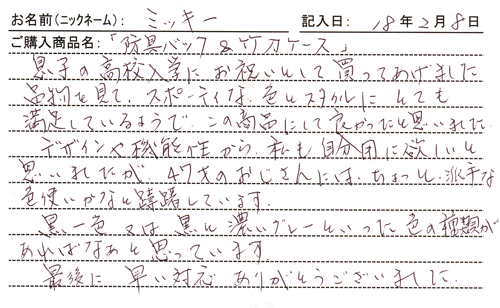 お名前（ニックネーム）： ミッキー 記入日： 18年2月8日
ご購入商品名：「防具バック＆竹刀ケース」
息子の高校入学にお祝いとして買ってあげました
品物を見て、スポーティな、色とスタイルに とても
満足しているようで、この商品にして良かったと思いました
デザインや機能性から、私も自分用に欲しいと
思いましたが、47才のおじさんには、ちょっと、派手な
色使いかなと躊躇しています。
黒一色 又は 黒と濃いグレーといった 色の種類が
あればなぁと思っています。
最後に 早い対応 ありがとうございました。